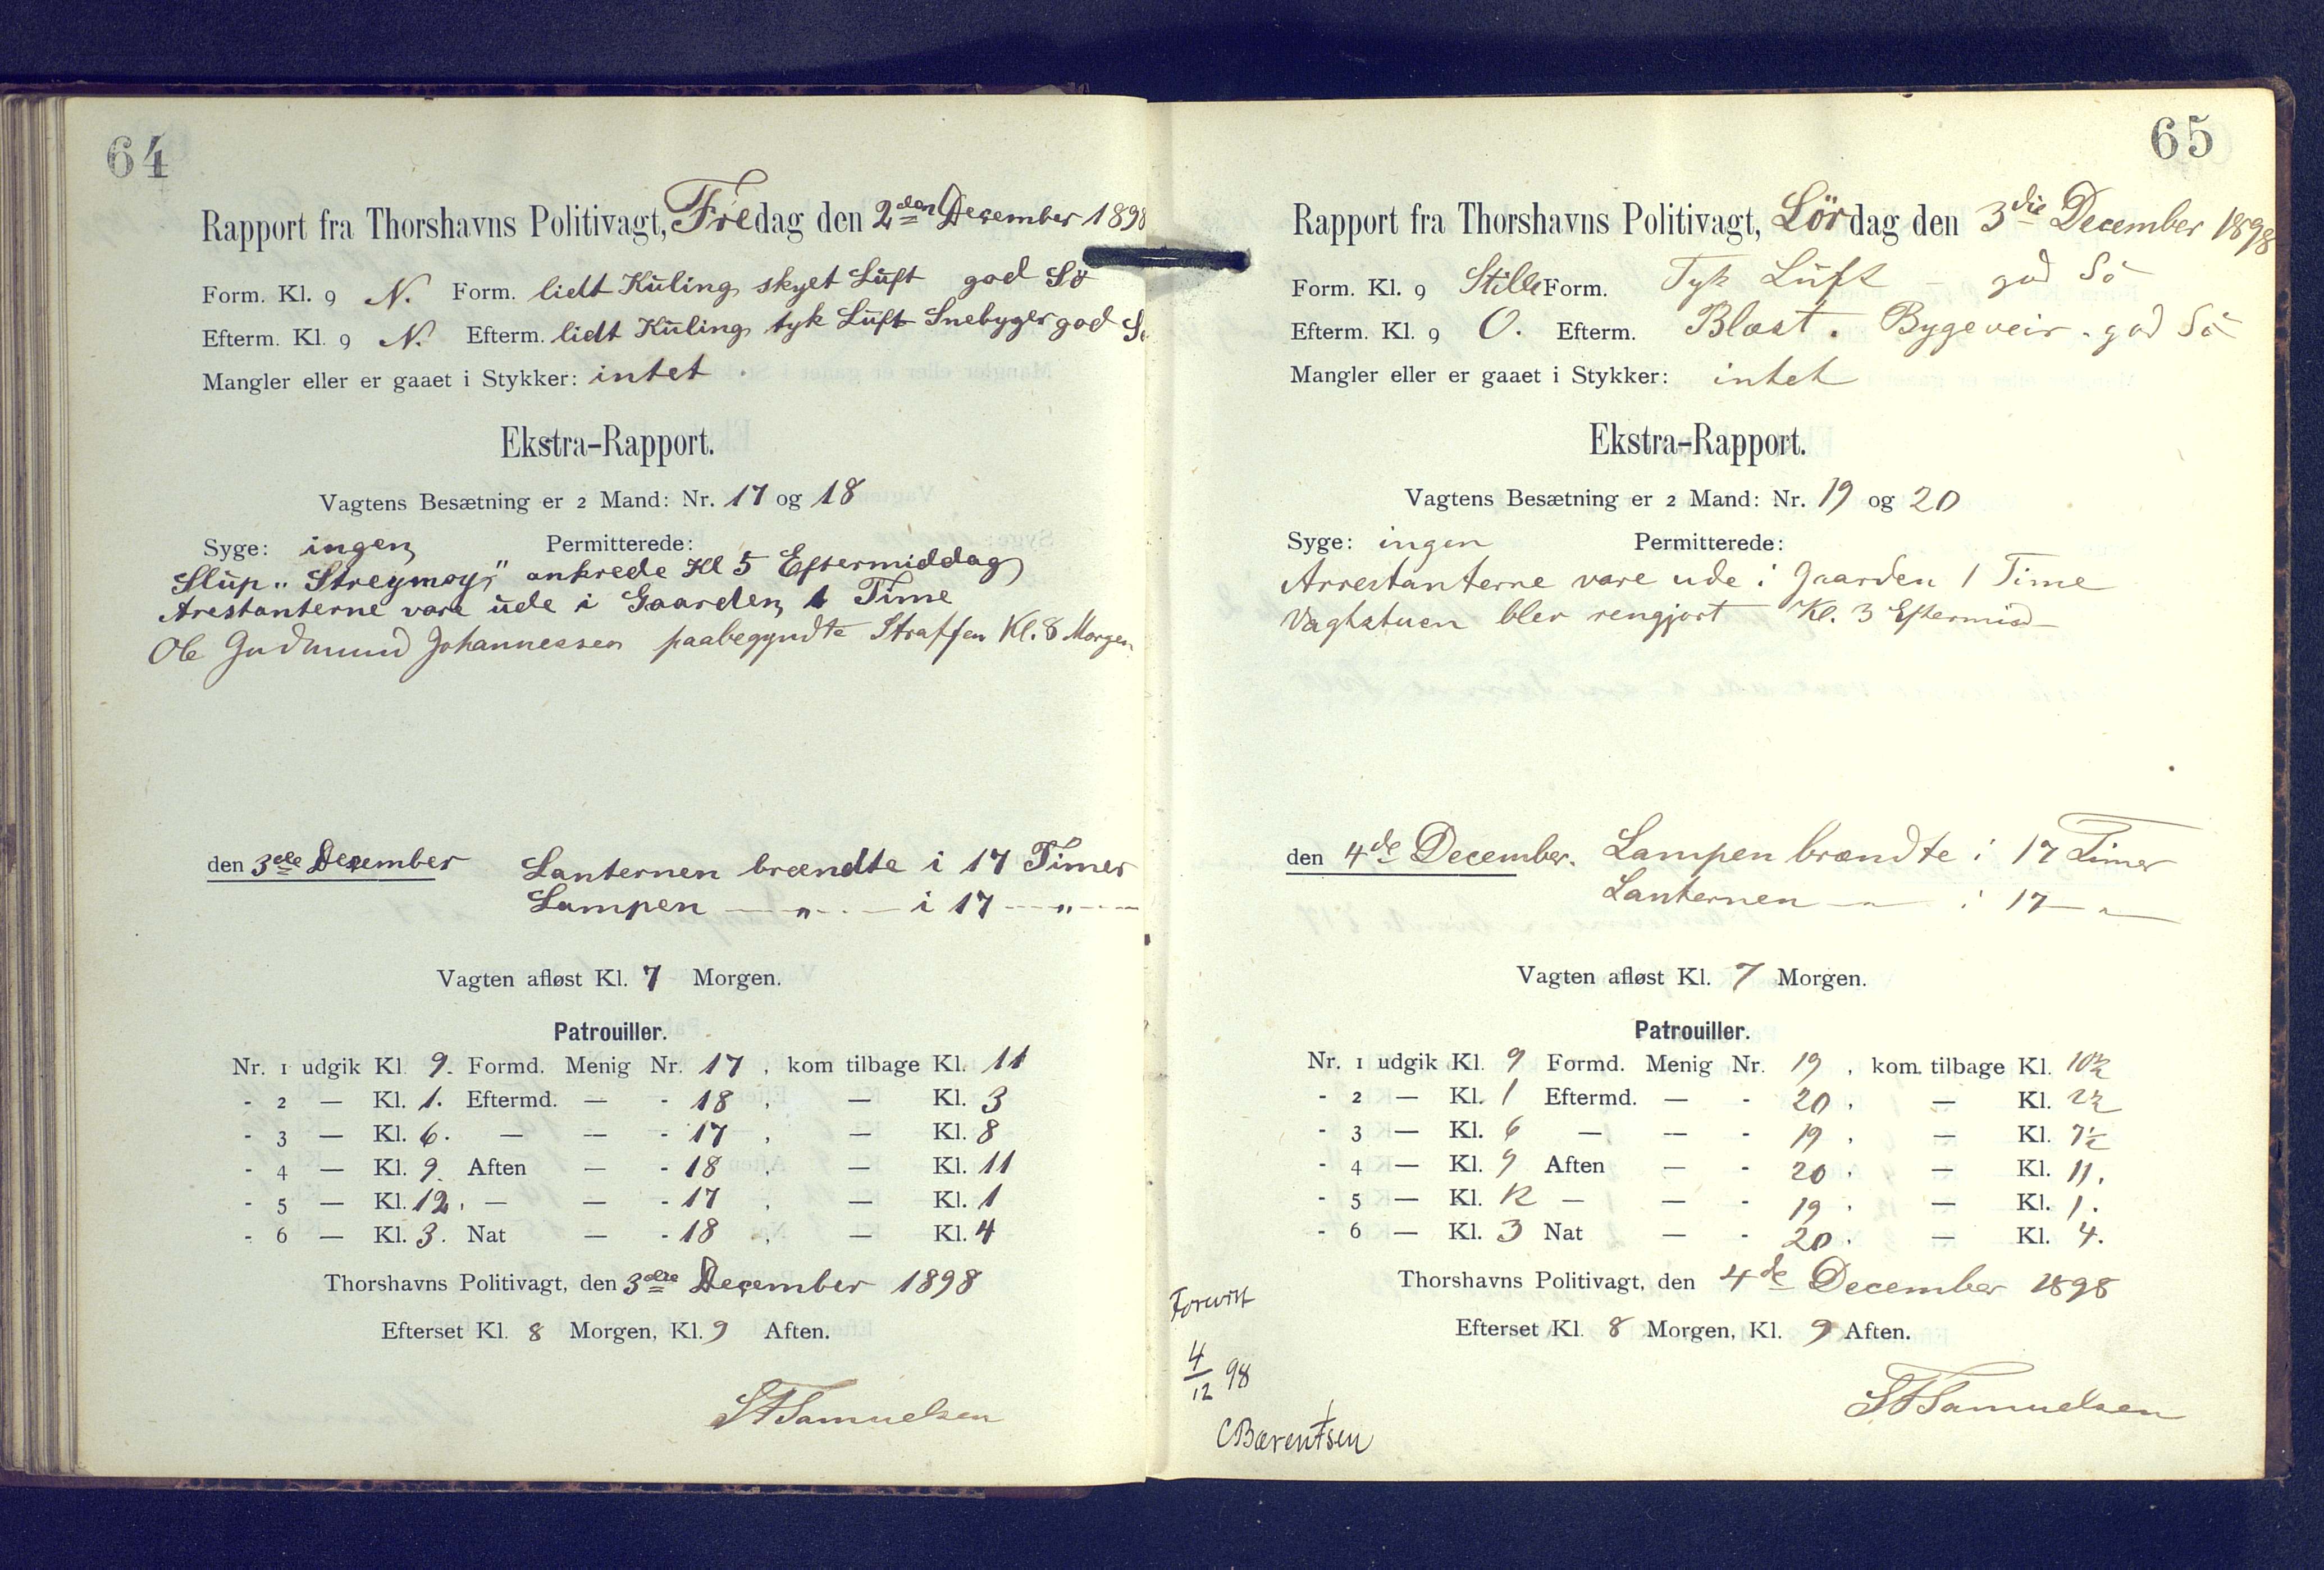 64
Rapport fra Thorshavns Politivagt, Fredag den 2den December 1898
Form. Kl. 9 N. Form. lidt Kuling skyet Luft god Sö
Efterm. Kl. 9 N. Efterm. lidt Kuling tyk Luft Snebyger god
Mangler eller er gaaet i Stykker: intet
Ekstra-Rapport.
Vagtens Besætning er 2 Mand: Nr. 17 og 18
Syge: ingen Permitterede:
Slup "Streymoy" ankrede Kl 5 Eftermiddag
Arestanterne vare ude i Gaarden 1 Time
Ole Gudmund Johannessen paabegyndte Straffen Kl. 8 Morgen
den 3die December Lanternen brændte i 17 Timer
Lampen — " — i 17 — " —
Vagten afløst Kl. 7 Morgen.
Patrouiller.
Nr. 1 udgik Kl. 9. Formd. Menig Nr. 17, kom tilbage Kl. 11
- 2 — Kl. 1. Eftermd. — - 18, — Kl. 3
- 3 — Kl. 6. — — - 17, — Kl. 8
- 4 — Kl. 9. Aften — - 18, — Kl. 11
- 5 — Kl. 12. — — - 17, — Kl. 1
- 6 — Kl. 3. Nat — - 18, — Kl. 4
Thorshavns Politivagt, den 3die December 1898
Efterset Kl. 8 Morgen, Kl. 9 Aften.
Samuelsen
65
Rapport fra Thorshavns Politivagt, Lördag den 3die December 1898
Form. Kl. 9 Stille Form. Tyk Luft - god Sö
Efterm. Kl. 9 O. Efterm. Blæst. Bygeveir - god Sö
Mangler eller er gaaet i Stykker: intet
Ekstra-Rapport.
Vagtens Besætning er 2 Mand: Nr. 19 og 20
Syge: ingen Permitterede:
Arrestanterne vare ude i Gaarden 1 Time
Vagtstuen blev rengjort Kl. 3 Eftermid-
den 4de December. Lampen brændte i 17 Timer
Lanternen — " — i 17 — " —
Vagten afløst Kl. 7 Morgen.
Patrouiller.
Nr. 1 udgik Kl. 9 Formd. Menig Nr. 19, kom tilbage Kl. 10½
- 2 — Kl. 1 Eftermd. — - 20, — Kl. 2½
- 3 — Kl. 6 — — - 19, — Kl. 7½
- 4 — Kl. 9 Aften — - 20, — Kl. 11.
- 5 — Kl. 12 — — - 19, — Kl. 1.
- 6 — Kl. 3 Nat — - 20, — Kl. 4.
Thorshavns Politivagt, den 4de December 1898
Efterset Kl. 8 Morgen, Kl. 9 Aften.
Samuelsen
Forevist
4/12 98
CBærentsen